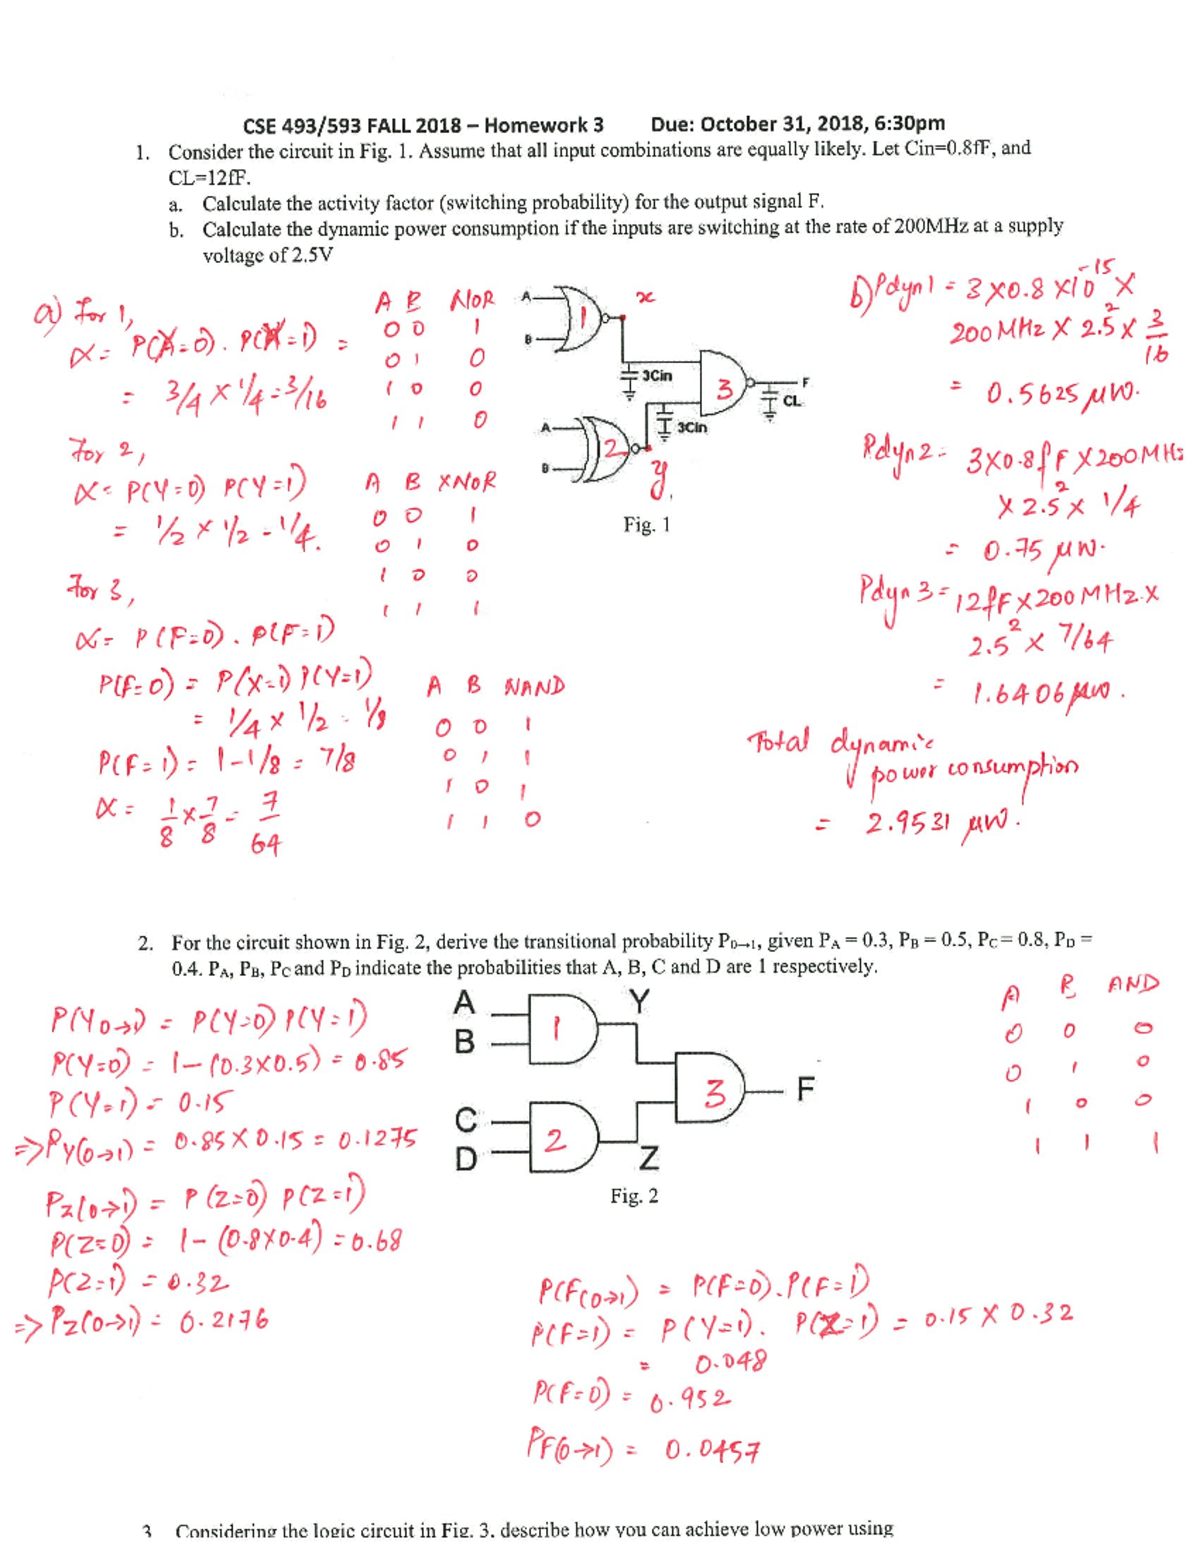 CSE 493/593 FALL 2018 – Homework 3 Due: October 31, 2018, 6:30pm
1. Consider the circuit in Fig. 1. Assume that all input combinations are equally likely. Let Cin=0.8fF, and
CL=12fF.
a. Calculate the activity factor (switching probability) for the output signal F.
b. Calculate the dynamic power consumption if the inputs are switching at the rate of 200MHz at a supply
voltage of 2.5V
a) For 1,
α = P(X=0). P(X=1) =
= 3/4 × 1/4 = 3/16
For 2,
α = P(Y=0) P(Y=1)
= 1/2 × 1/2 = 1/4.
For 3,
α = P(F=0). P(F=1)
P(F=0) = P(X=1) P(Y=1)
= 1/4 × 1/2 = 1/8
P(F=1) = 1-1/8 = 7/8
α = 1/8 × 7/8 = 7/64
A B NOR
0 0 1
0 1 0
1 0 0
1 1 0
A B XNOR
0 0 1
0 1 0
1 0 0
1 1 1
A B NAND
0 0 1
0 1 1
1 0 1
1 1 0
A
B
1
x
3Cin
3
F
CL
A
B
2
3Cin
y.
Fig. 1
b) Pdyn1 = 3×0.8 ×10^-15 ×
200MHz × 2.5^2 × 3/16
= 0.5625 μW.
Pdyn2 = 3×0.8fF × 200MHz
× 2.5^2 × 1/4
= 0.75 μW.
Pdyn3 = 12fF × 200MHz ×
2.5^2 × 7/64
= 1.6406 μW.
Total dynamic
power consumption
= 2.9531 μW.
2. For the circuit shown in Fig. 2, derive the transitional probability P0→1, given PA = 0.3, PB = 0.5, PC = 0.8, PD =
0.4. PA, PB, PC and PD indicate the probabilities that A, B, C and D are 1 respectively.
P(Y0→1) = P(Y=0) P(Y=1)
P(Y=0) = 1-(0.3×0.5) = 0.85
P(Y=1) = 0.15
=> PY(0→1) = 0.85 × 0.15 = 0.1275
PZ(0→1) = P(Z=0) P(Z=1)
P(Z=0) = 1-(0.8×0.4) = 0.68
P(Z=1) = 0.32
=> PZ(0→1) = 0.2176
A
B
1
Y
C
D
2
Z
3
F
Fig. 2
A B AND
0 0 0
0 1 0
1 0 0
1 1 1
P(F(0→1) = P(F=0).P(F=1)
P(F=1) = P(Y=1). P(Z=1) = 0.15 × 0.32
= 0.048
P(F=0) = 0.952
PF(0→1) = 0.0457
3 Considering the logic circuit in Fig. 3, describe how you can achieve low power using